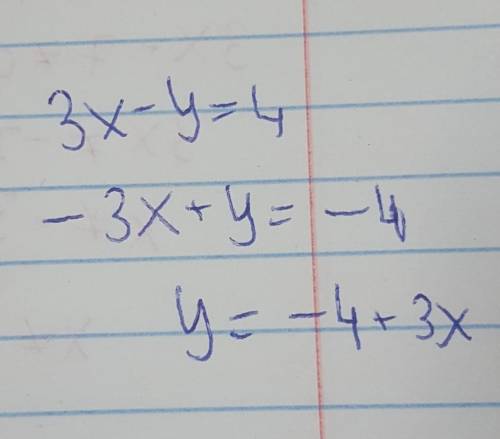 3x - y = 4
- 3x + y = - 4
y = - 4 + 3x